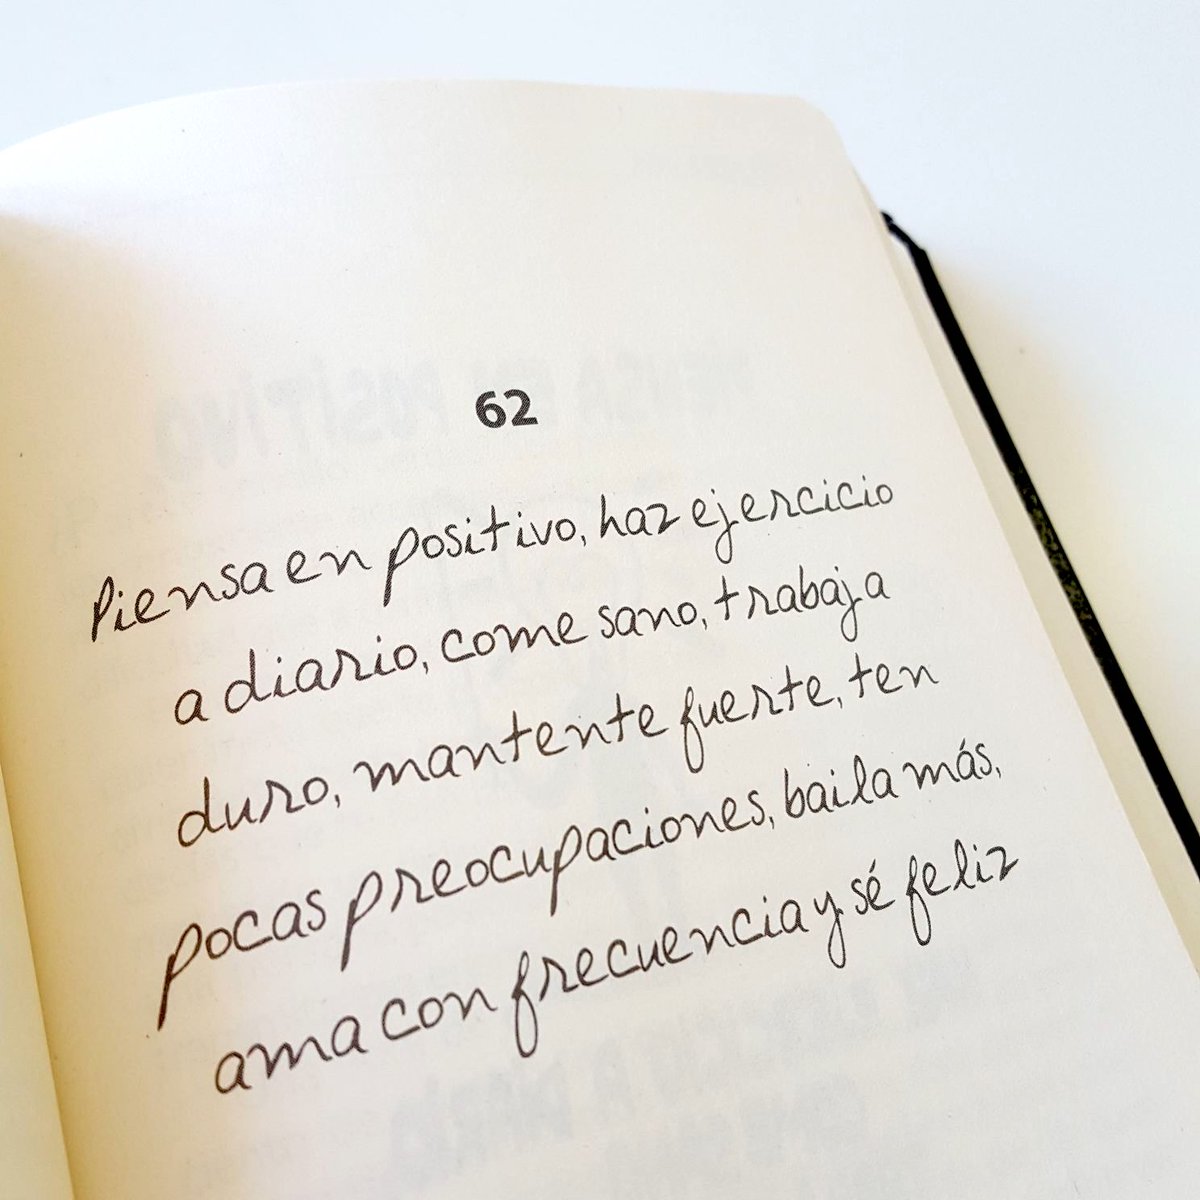 62
Piensa en positivo, haz ejercicio
a diario, come sano, trabaja
duro, mantente fuerte, ten
pocas preocupaciones, baila más,
ama con frecuencia y sé feliz